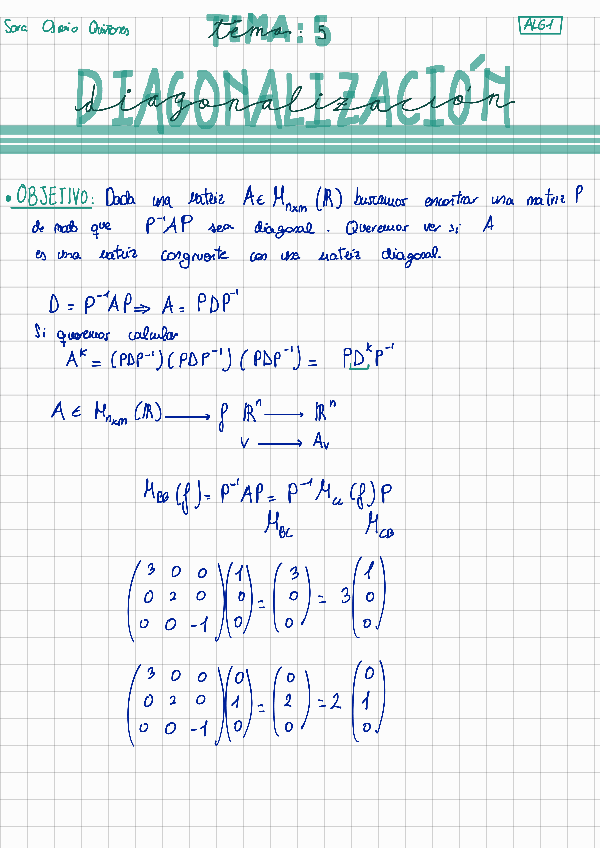 Sara Osorio Quiñones
tema: 5
ALG1
diagonalización
• OBJETIVO: Dada una matriz A ∈ M_{nxm} (ℝ) buscamos encontrar una matriz P
de modo que P⁻¹AP sea diagonal. Queremos ver si A
es una matriz congruente con una matriz diagonal.
D = P⁻¹AP ⇒ A = PDP⁻¹
Si queremos calcular
Aᵏ = (PDP⁻¹)(PDP⁻¹)(PDP⁻¹) = PDᵏP⁻¹
A ∈ M_{nxm} (ℝ) ⟶ f ℝⁿ ⟶ ℝⁿ
v ⟶ Av
M_{BB} (f) = P⁻¹AP = P⁻¹ M_{CC} (f) P
M_{BC} M_{CB}
(3 0 0; 0 2 0; 0 0 -1) (1; 0; 0) = (3; 0; 0) = 3 (1; 0; 0)
(3 0 0; 0 2 0; 0 0 -1) (0; 1; 0) = (0; 2; 0) = 2 (0; 1; 0)